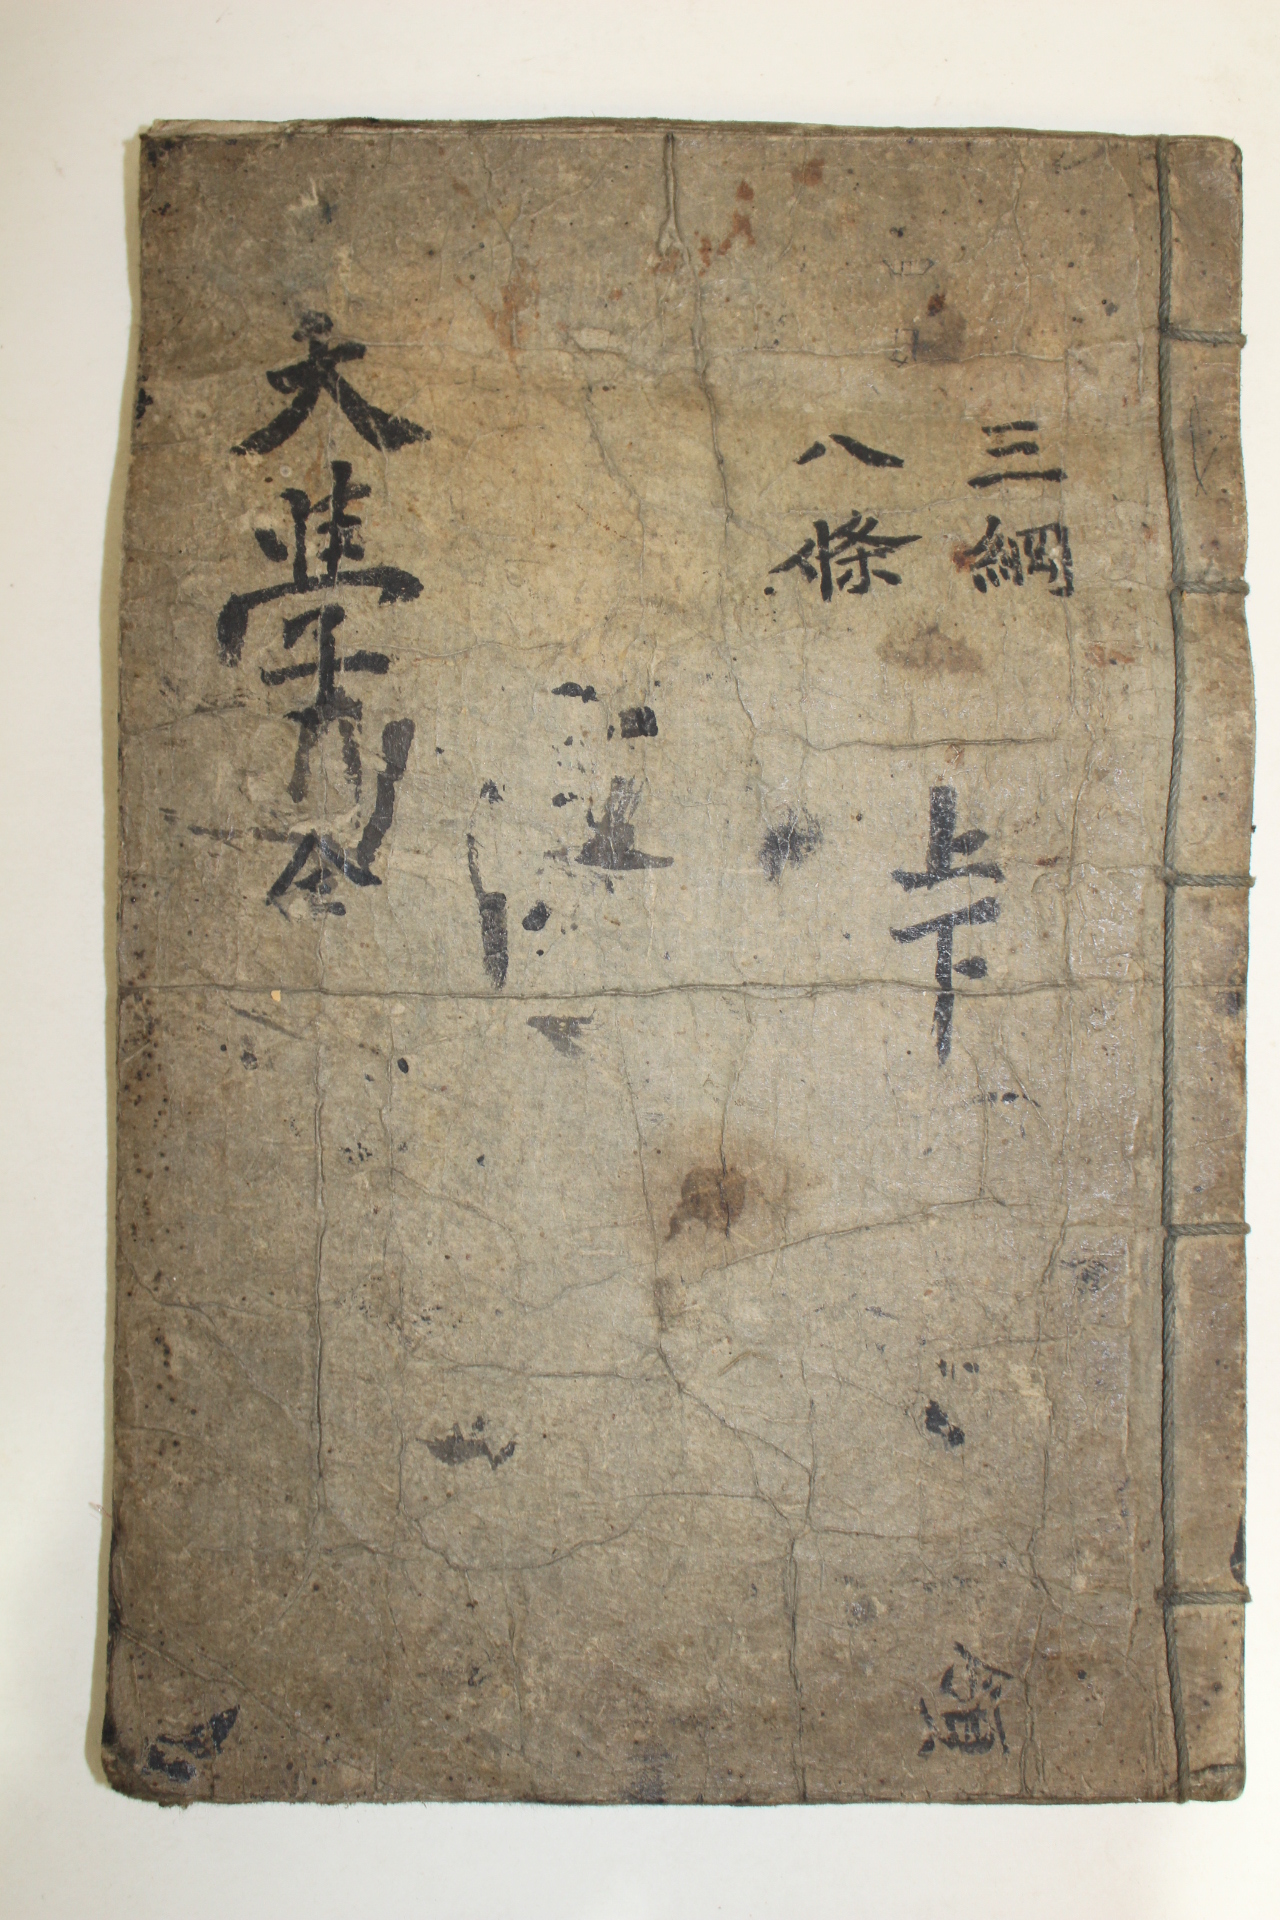 三綱
八條
上下
大學
全